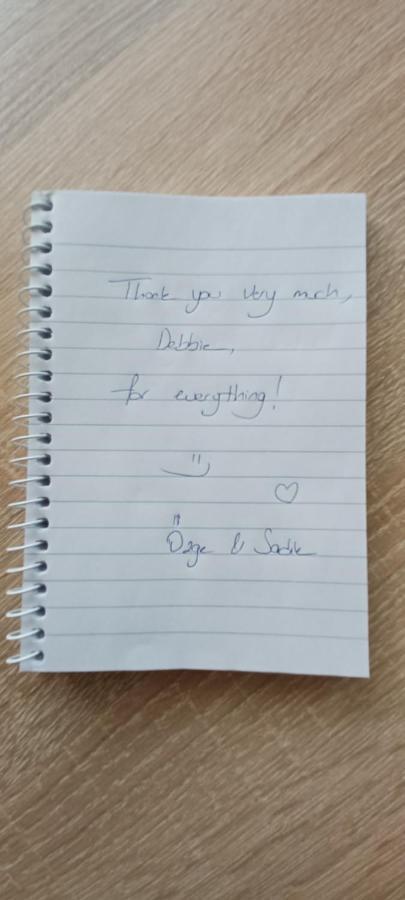 Thank you very much,
Debbie,
for everything!
Özge & Sadık